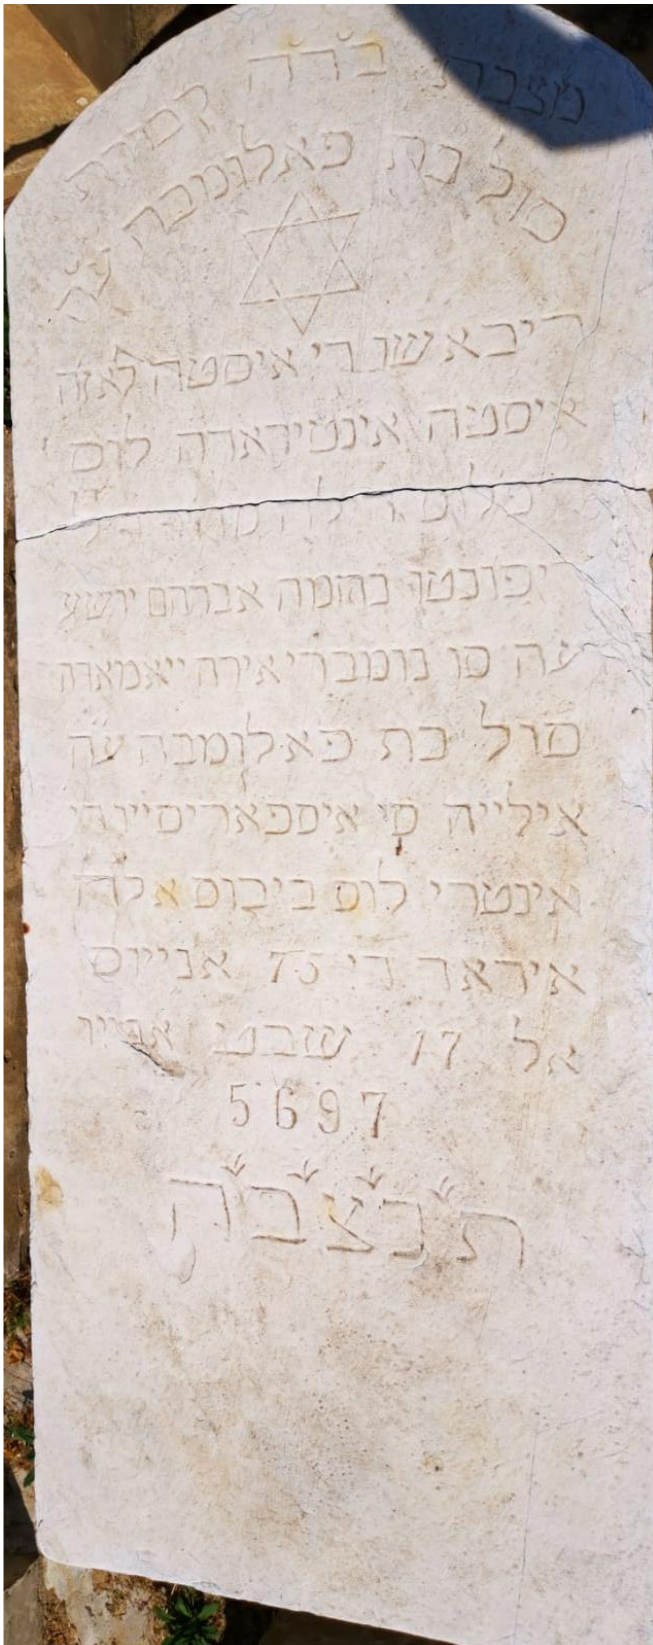 מצבת ב֗ר֗ה קבורת
סול בת פאלומבה ע״ה
דיבאשו די איסטה לאזה
איסטה אינטיראדה לוס
יפונטו בהומה אברהם יושע
סו נומברי אירה ייאמאדה
סול בת פאלומבה ע״ה
אילייה סי איספאריסיינדי
אינטרי לוס ביבוס אלה
איראד די 75 אנייוס
אל 17 שבט אנייו
5697
ת׳נ׳צ׳ב׳ה